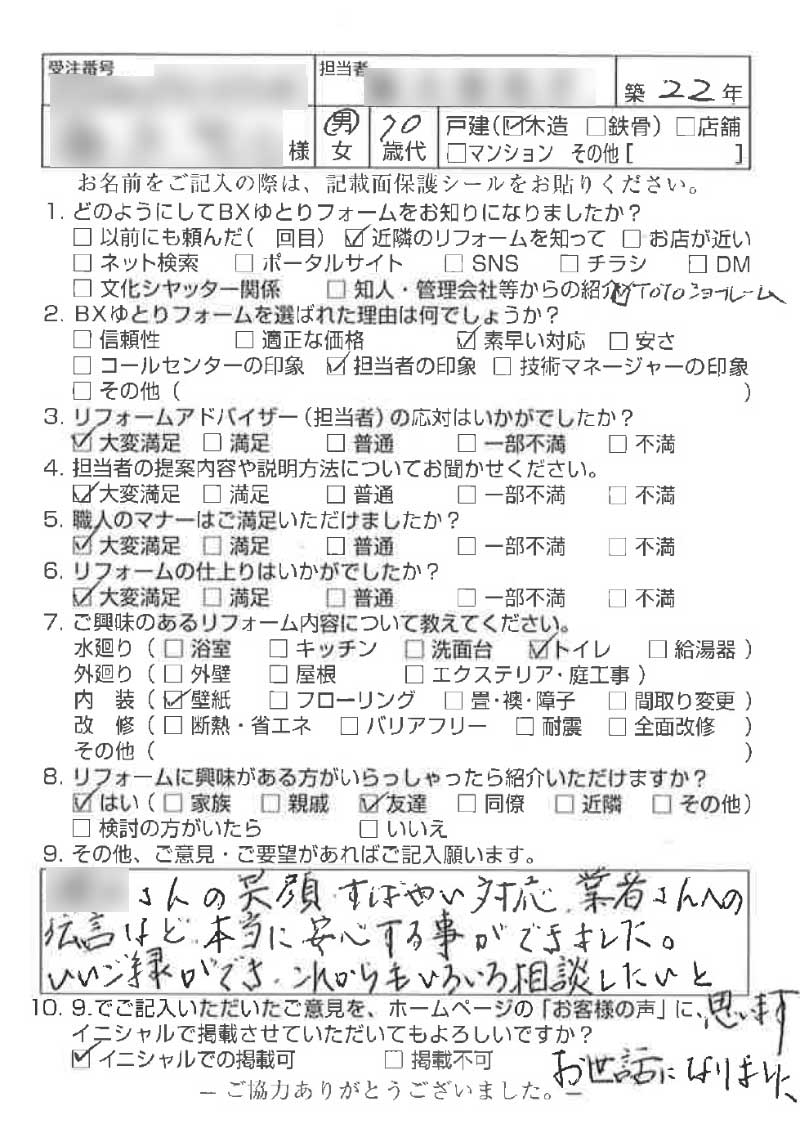 受注番号 担当者 築 22 年
様 男 女 70 歳代 戸建(☑木造 □鉄骨) □店舗
□マンション その他[ ]
お名前をご記入の際は、記載面保護シールをお貼りください。
1. どのようにしてBXゆとりフォームをお知りになりましたか?
□ 以前にも頼んだ( 回目) ☑ 近隣のリフォームを知って □ お店が近い
□ ネット検索 □ ポータルサイト □ SNS □ チラシ □ DM
□ 文化シヤッター関係 □ 知人・管理会社等からの紹介 ☑TOTOショールーム
2. BXゆとりフォームを選ばれた理由は何でしょうか?
□ 信頼性 □ 適正な価格 ☑ 素早い対応 □ 安さ
□ コールセンターの印象 ☑ 担当者の印象 □ 技術マネージャーの印象
□ その他 ( )
3. リフォームアドバイザー(担当者)の応対はいかがでしたか?
☑ 大変満足 □ 満足 □ 普通 □ 一部不満 □ 不満
4. 担当者の提案内容や説明方法についてお聞かせください。
☑ 大変満足 □ 満足 □ 普通 □ 一部不満 □ 不満
5. 職人のマナーはご満足いただけましたか?
☑ 大変満足 □ 満足 □ 普通 □ 一部不満 □ 不満
6. リフォームの仕上りはいかがでしたか?
☑ 大変満足 □ 満足 □ 普通 □ 一部不満 □ 不満
7. ご興味のあるリフォーム内容について教えてください。
水廻り ( □ 浴室 □ キッチン □ 洗面台 ☑トイレ □ 給湯器 )
外廻り ( □ 外壁 □ 屋根 □ エクステリア・庭工事 )
内 装 ( ☑ 壁紙 □ フローリング □ 畳・襖・障子 □ 間取り変更 )
改 修 ( □ 断熱・省エネ □ バリアフリー □ 耐震 □ 全面改修 )
その他 ( )
8. リフォームに興味がある方がいらっしゃったら紹介いただけますか?
☑ はい ( □ 家族 □ 親戚 ☑友達 □ 同僚 □ 近隣 □ その他)
□ 検討の方がいたら □ いいえ
9. その他、ご意見・ご要望があればご記入願います。
さんの笑顔、すばやい対応、業者さんへの
伝言など、本当に安心する事ができました。
いいご縁ができ、これからもいろいろ相談したいと
思います
10. 9.でご記入いただいたご意見を、ホームページの「お客様の声」に、
イニシャルで掲載させていただいてもよろしいですか?
☑ イニシャルでの掲載可 □ 掲載不可
お世話になりました、
– ご協力ありがとうございました。–